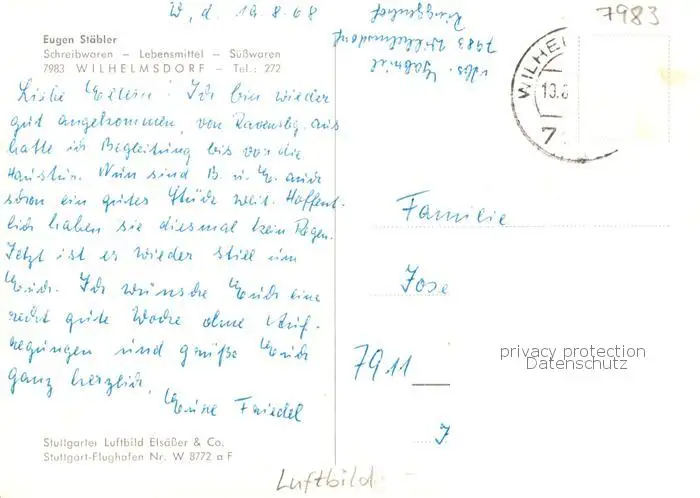 W., d. 19.8.68
7983
Abs. Gabriel
7983 Wilhelmsdorf
Ringgenhof
Eugen Stäbler
Schreibwaren – Lebensmittel – Süßwaren
7983 WILHELMSDORF – Tel.: 272
WILHE
Liebe Eltern! Ich bin wieder
gut angekommen, von Ravensbg. aus
hatte ich Begleitung bis vor die
Haustür. Nun sind B. u. E. auch
schon ein gutes Stück weit. Hoffent-
lich haben sie diesmal kein Regen.
Jetzt ist es wieder still um
Euch. Ich wünsche Euch eine
recht gute Woche ohne Auf-
regungen und grüße Euch
ganz herzlich.
Eure Friedel
Familie
Jose
7911
J
privacy protection
Datenschutz
Stuttgarter Luftbild Elsäßer & Co.
Stuttgart-Flughafen Nr. W 8772 a F
Luftbild